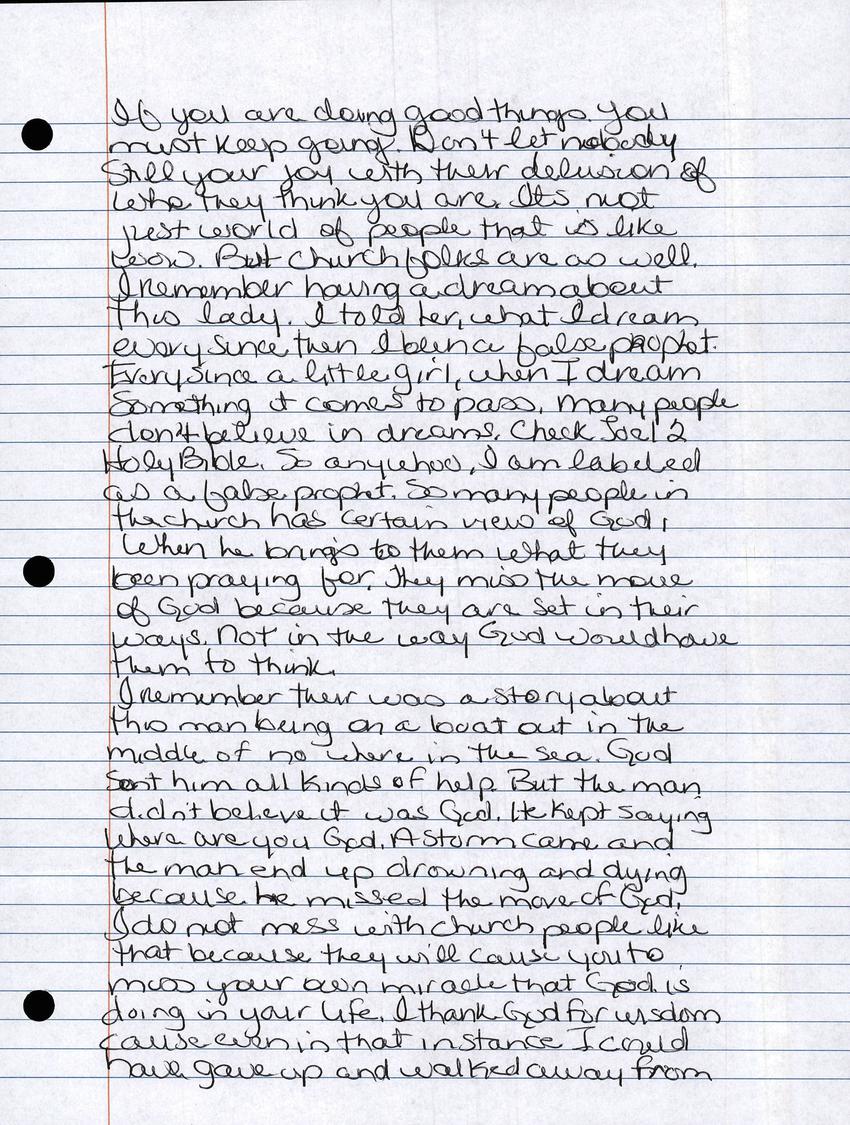 If you are doing good things. You
must keep going. Don't let nobody
Still your joy with their delusion of
who they think you are. Its not
just world of people that is like
But church folks are as well.
I remember having a dream about
this lady. I told her, what I dream
every since then I been a false prophet.
Every since a little girl, when I dream
Something it comes to pass. Many people
don't believe in dreams. Check Joel 2
Holy Bible. So anywhoo, I am labeled
as a false prophet. So many people in
the church has certain view of God,
When he brings to them what they
been praying for. They miss the move
of God because they are set in their
ways. Not in the way God would have
them to think.
I remember their was a story about
this man being on a boat out in the
middle of no where in the sea. God
Sent him all kinds of help. But the man
didn't believe it was God. He kept saying
where are you God. A Storm came and
the man end up drowning and dying
because he missed the move of God.
I do not mess with church people like
that because they will cause you to
miss your own miracle that God is
doing in your life. I thank God for wisdom
cause even in that instance I could
have gave up and walked away from